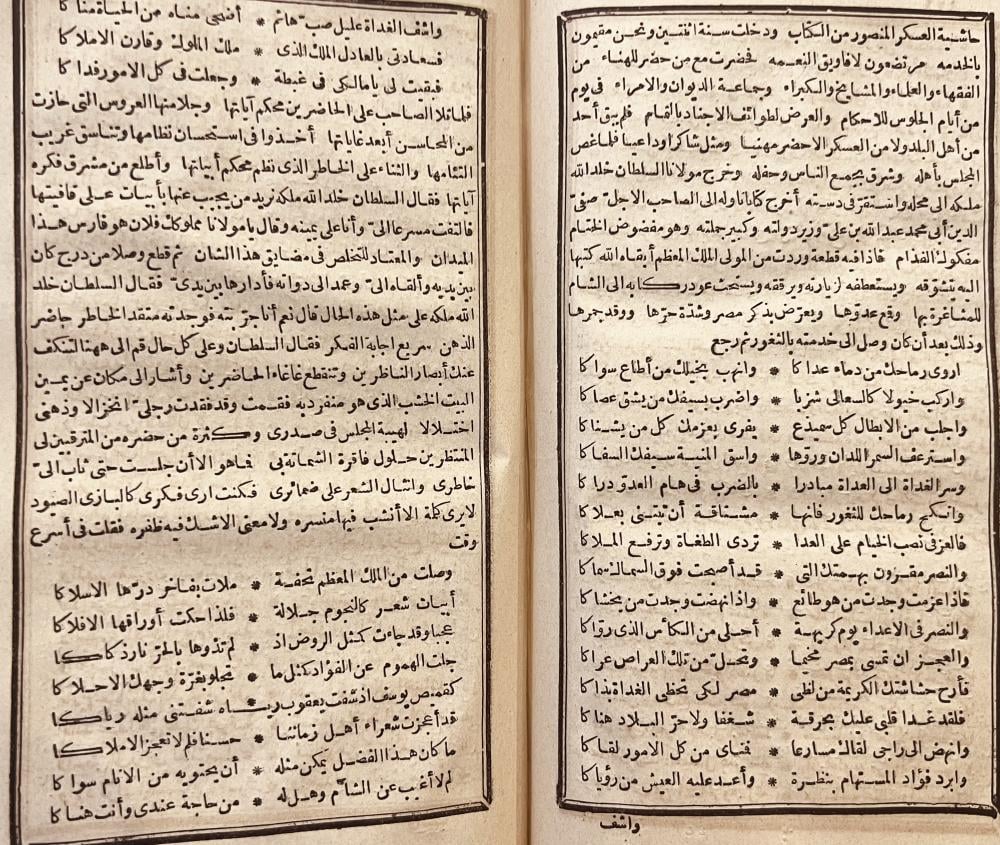 حاشية العسكر المنصور من الكتاب ودخلت سنة اثنتين ونحن مقيمون
بالخدمه مرتضعون لأفاويق النعمه فحضرت مع من حضر للهناء من
الفقهاء والعلماء والمشايخ والكبراء وجماعة الديوان والامراء فى يوم
من أيام الجلوس للاحكام والعرض لطوائف الاجناد بالتمام فلم يبق أحد
من أهل البلد ولا من العسكر الا حضر مهنيا ومثل شاكرا وداعيا فلما غص
المجلس بأهله وشرق بجمع الناس وحفله وخرج مولانا السلطان خلد الله
ملكه الى محله واستقر فى دسته أخرج كتابا ناوله الى الصاحب الاجل صفى
الدين أبى محمد عبد الله بن على وزير دولته وكبير جملته وهو مفضوض الختام
مفكوك الفدام فاذا فيه قطعة وردت من المولى الملك المعظم أبقاه الله كتبها
اليه يتشوقه ويستعطفه لزيارته ويرققه ويستحث عود ركابه الى الشام
للمثاغرة بها وقع عدوها ويعرض بذكر مصر وشدة حرها ووقد جمرها
وذلك بعد أن كان وصل الى خدمته بالثغور ثم رجع
اروى رماحك من دماء عداكا * وانهب بخيلك من أطاع سواكا
واركب خيولا كالسعالى شزبا * واضرب بسيفك من يشق عصاكا
واجلب من الابطال كل سميدع * يفرى بعزمك كل من يشناكا
واسترعف السمر اللدان وروها * واسق المنية سيفك السفاكا
وسر الغداة الى العداة مبادرا * بالضرب فى هام العدو دراكا
وانكح رماحك للثغور فانها * مشتاقة أن تبتنى بعلاكا
فالعز فى نصب الخيام على العدا * تردى الطغاة وترفع الملاكا
والنصر مقرون بهمتك التى * قد أصبحت فوق السماك سماكا
فاذا عزمت وجدت من هو طائع * واذا نهضت وجدت من يخشاكا
والنصر فى الاعداء يوم كريهة * أحلى من الكأس الذى رواكا
والعجز ان تمسى بمصر مخيما * وتحل من تلك العراص عراكا
فأرح حشاشتك الكريمة من لظى * مصر لكى تحظى الغداة بذاكا
فلقد غدا قلبى عليك بحرقة * شغفا ولا حر البلاد هناكا
وانهض الى راجى لقاك مسارعا * فمناى من كل الامور لقاكا
وابرد فؤاد المستهام بنظرة * وأعد عليه العيش من رؤياكا
واشف
واشف الغداة غليل صب هائم * أضحى مناه من الحياة مناكا
فسعادتى بالعادل الملك الذى * ملك الملوك وقارن الافلاكا
فبقيت لى يا مالكى فى غبطة * وجعلت فى كل الامور فداكا
فلما تلا الصاحب على الحاضرين محكم آياتها وجلا منها العروس التى حازت
من المحاسن أبعد غاياتها أخذوا فى استحسان نظامها وتناسق غريب
التئامها والثناء على الخاطر الذى نظم محكم أبياتها وأطلع من مشرق فكره
آياتها فقال السلطان خلد الله ملكه نريد من يجيب عنها بأبيات على قافيتها
فالتفت مسرعا الى وأنا على يمينه وقال يا مولانا مملوكك فلان هو فارس هذا
الميدان والمعتاد للتخلص فى مضايق هذا الشان ثم قطع وصلا من درج كان
بين يديه وألقاه الى وعمد الى دواته فأدارها بين يدى فقال السلطان خلد
الله ملكه على مثل هذه الحال قال نعم أنا جربته فوجدته متقد الخاطر حاضر
الذهن سريع اجابة الفكر فقال السلطان وعلى كل حال قم الى ههنا لتنكف
عنك أبصار الناظرين وتنقطع غاغاء الحاضرين وأشار الى مكان عن يمين
البيت الخشب الذى هو منفرد به فقمت وقد فقدت رجلى انخزالا وذهنى
اختلالا لهيبة المجلس فى صدرى وكثرة من حضره من المترقبين لى
المنتظرين حلول فاقرة الشماتة بى فما هو الا أن جلست حتى ثاب الى
خاطرى وانثال الشعر على ضمائرى فكنت ارى فكرى كالبازى الصيود
لا يرى كلمة الا أنشب فيها منسره ولا معنى الا شك فيه ظفره فقلت فى أسرع
وقت
وصلت من الملك المعظم تحفة * ملأت بفاخر درها الاسلاكا
أبيات شعر كالنجوم جلالة * فلذا حكت أوراقها الافلاكا
عجبا وقد جاءت كمثل الروض اذ * لم تذوها بالحر نار ذكاكا
جلت الهموم عن الفؤاد كمثل ما * تجلو بغرة وجهك الاحلاكا
كقميص يوسف اذ شفت يعقوب ريـ * ـاه شفتنى مثله رياكا
قد أعجزت شعراء أهل زماننا * حسنا فلم لا تعجز الاملاكا
ما كان هذا الفضل يمكن مثله * أن يحتويه من الانام سواكا
لم لا أغيب عن الشآم وهل له * من حاجة عندى وأنت هناكا